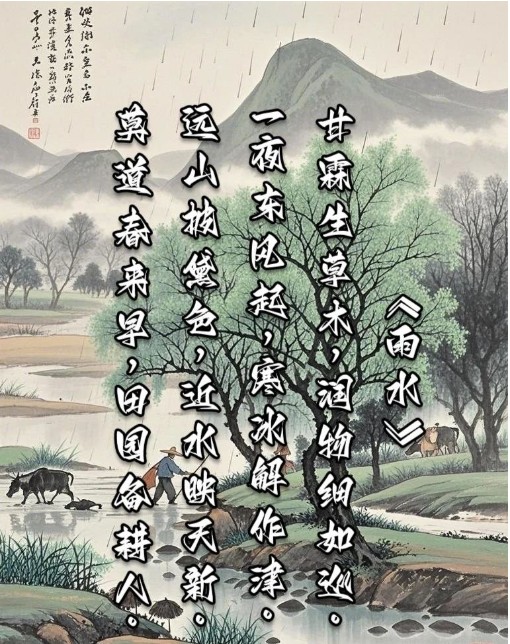 《雨水》
甘霖生草木，润物细如巡。
一夜东风起，寒冰解作津。
远山披黛色，近水映天新。
莫道春来早，田园备耕人。